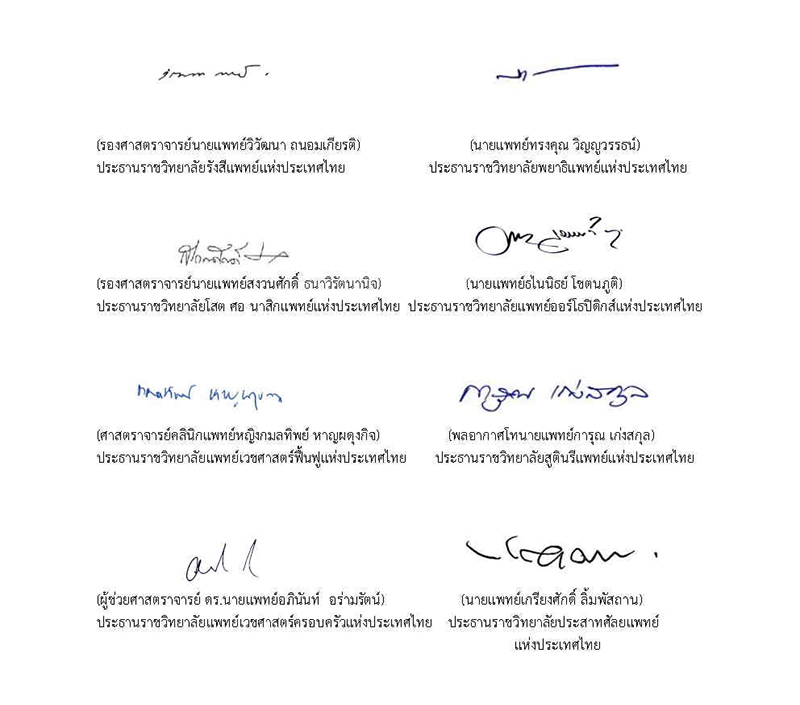 (รองศาสตราจารย์นายแพทย์วิวัฒนา ถนอมเกียรติ)
ประธานราชวิทยาลัยรังสีแพทย์แห่งประเทศไทย
(นายแพทย์ทรงคุณ วิญญูวรรธน์)
ประธานราชวิทยาลัยพยาธิแพทย์แห่งประเทศไทย
(รองศาสตราจารย์นายแพทย์สงวนศักดิ์ ธนาวิรัตนานิจ)
ประธานราชวิทยาลัยโสต ศอ นาสิกแพทย์แห่งประเทศไทย
(นายแพทย์ธไนนิธย์ โชตนภูติ)
ประธานราชวิทยาลัยแพทย์ออร์โธปิดิกส์แห่งประเทศไทย
(ศาสตราจารย์คลินิกแพทย์หญิงกมลทิพย์ หาญผดุงกิจ)
ประธานราชวิทยาลัยแพทย์เวชศาสตร์ฟื้นฟูแห่งประเทศไทย
การุณ เก่งสกุล
(พลอากาศโทนายแพทย์การุณ เก่งสกุล)
ประธานราชวิทยาลัยสูตินรีแพทย์แห่งประเทศไทย
(ผู้ช่วยศาสตราจารย์ ดร.นายแพทย์อภินันท์ อร่ามรัตน์)
ประธานราชวิทยาลัยแพทย์เวชศาสตร์ครอบครัวแห่งประเทศไทย
(นายแพทย์เกรียงศักดิ์ ลิ้มพัสถาน)
ประธานราชวิทยาลัยประสาทศัลยแพทย์
แห่งประเทศไทย